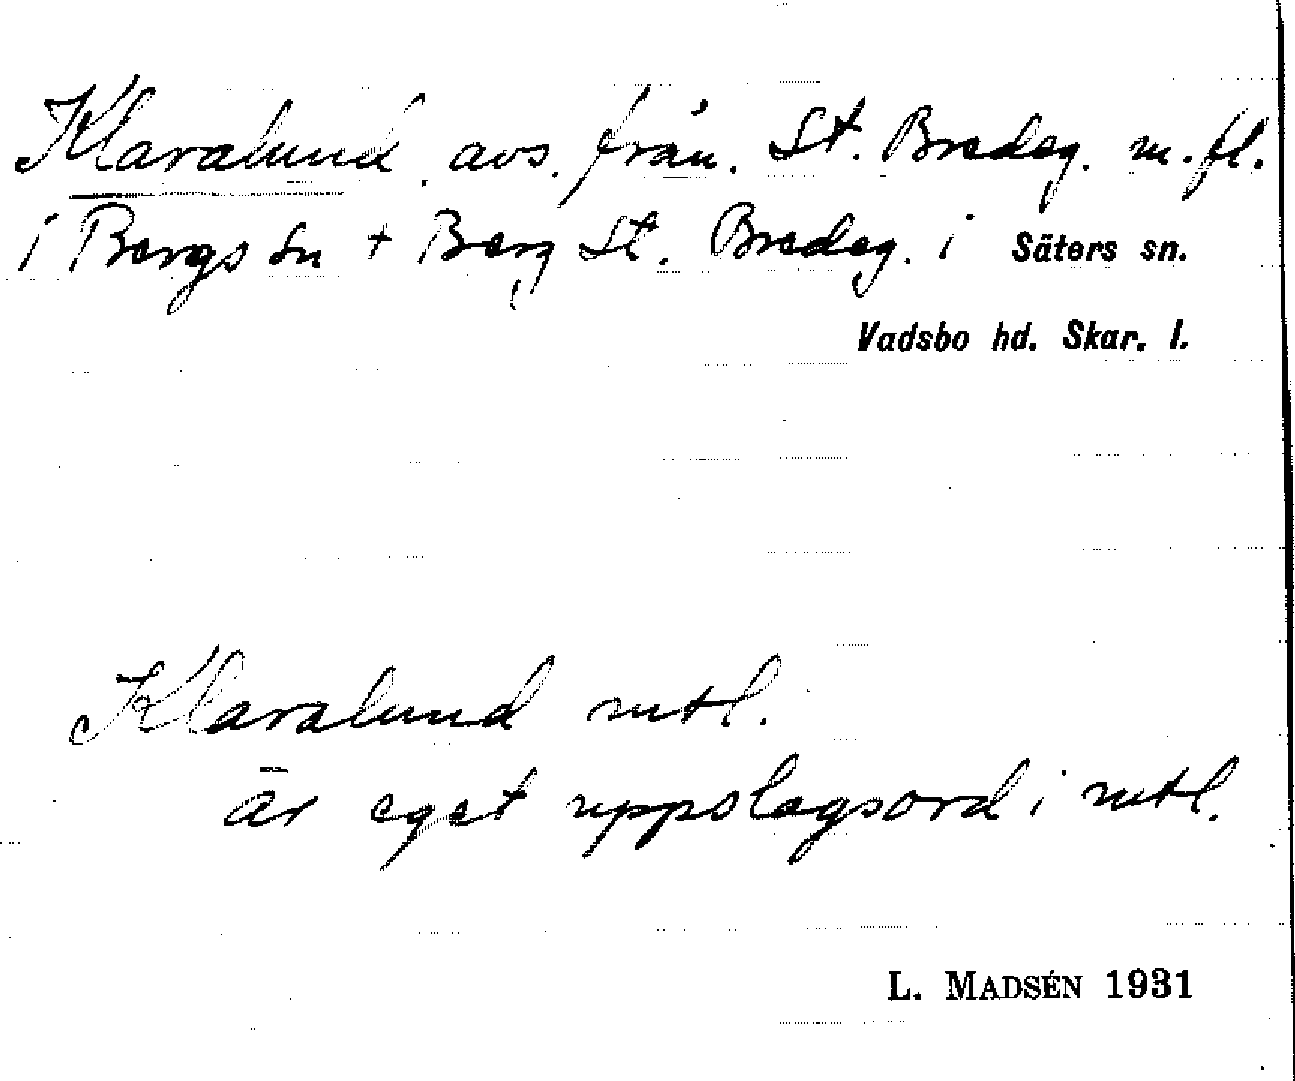 Klaralund. avs. från. St. Bredeg. m. fl.
i Bergs sn + Berg St. Bredeg. i Säters sn.
Vadsbo hd. Skar. l.
Klaralund mtl.
är eget uppslagsord i mtl.
L. MADSÉN 1931